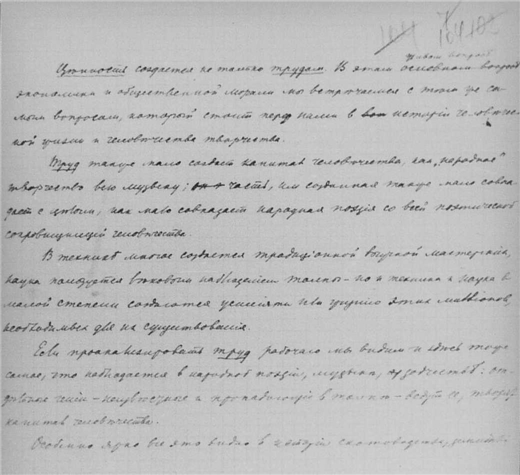 Ценность создается не только трудом. В этом основном вопросе
экономики и общественной морали мы встречаемся с тем же са
мым вопросом, который стоит перед нами в истории человечес
кой жизни и человечества творчества.
Труд также мало создает капитал человечества, как „народное"
творчество всю музыку; часть, им созданная также мало совпа
дает с целым, как мало совпадает народная поэзия со всей поэтической
сокровищницей человечества.
В технике многое создается традиционной выучкой мастерских,
наука пользуется вековым наблюдением толпы - но и техника и наука в
малой степени создаются усилиями этих миллионов,
необходимых для их существования.
Если проанализировать труд рабочего мы видим и здесь тоже
самое, что наблюдается в народной поэзии, музыке,
гении - неизвестные и пропадающие в толпе -
капитал человечества.
Особенно ярко все это видно в истории скотоводства,